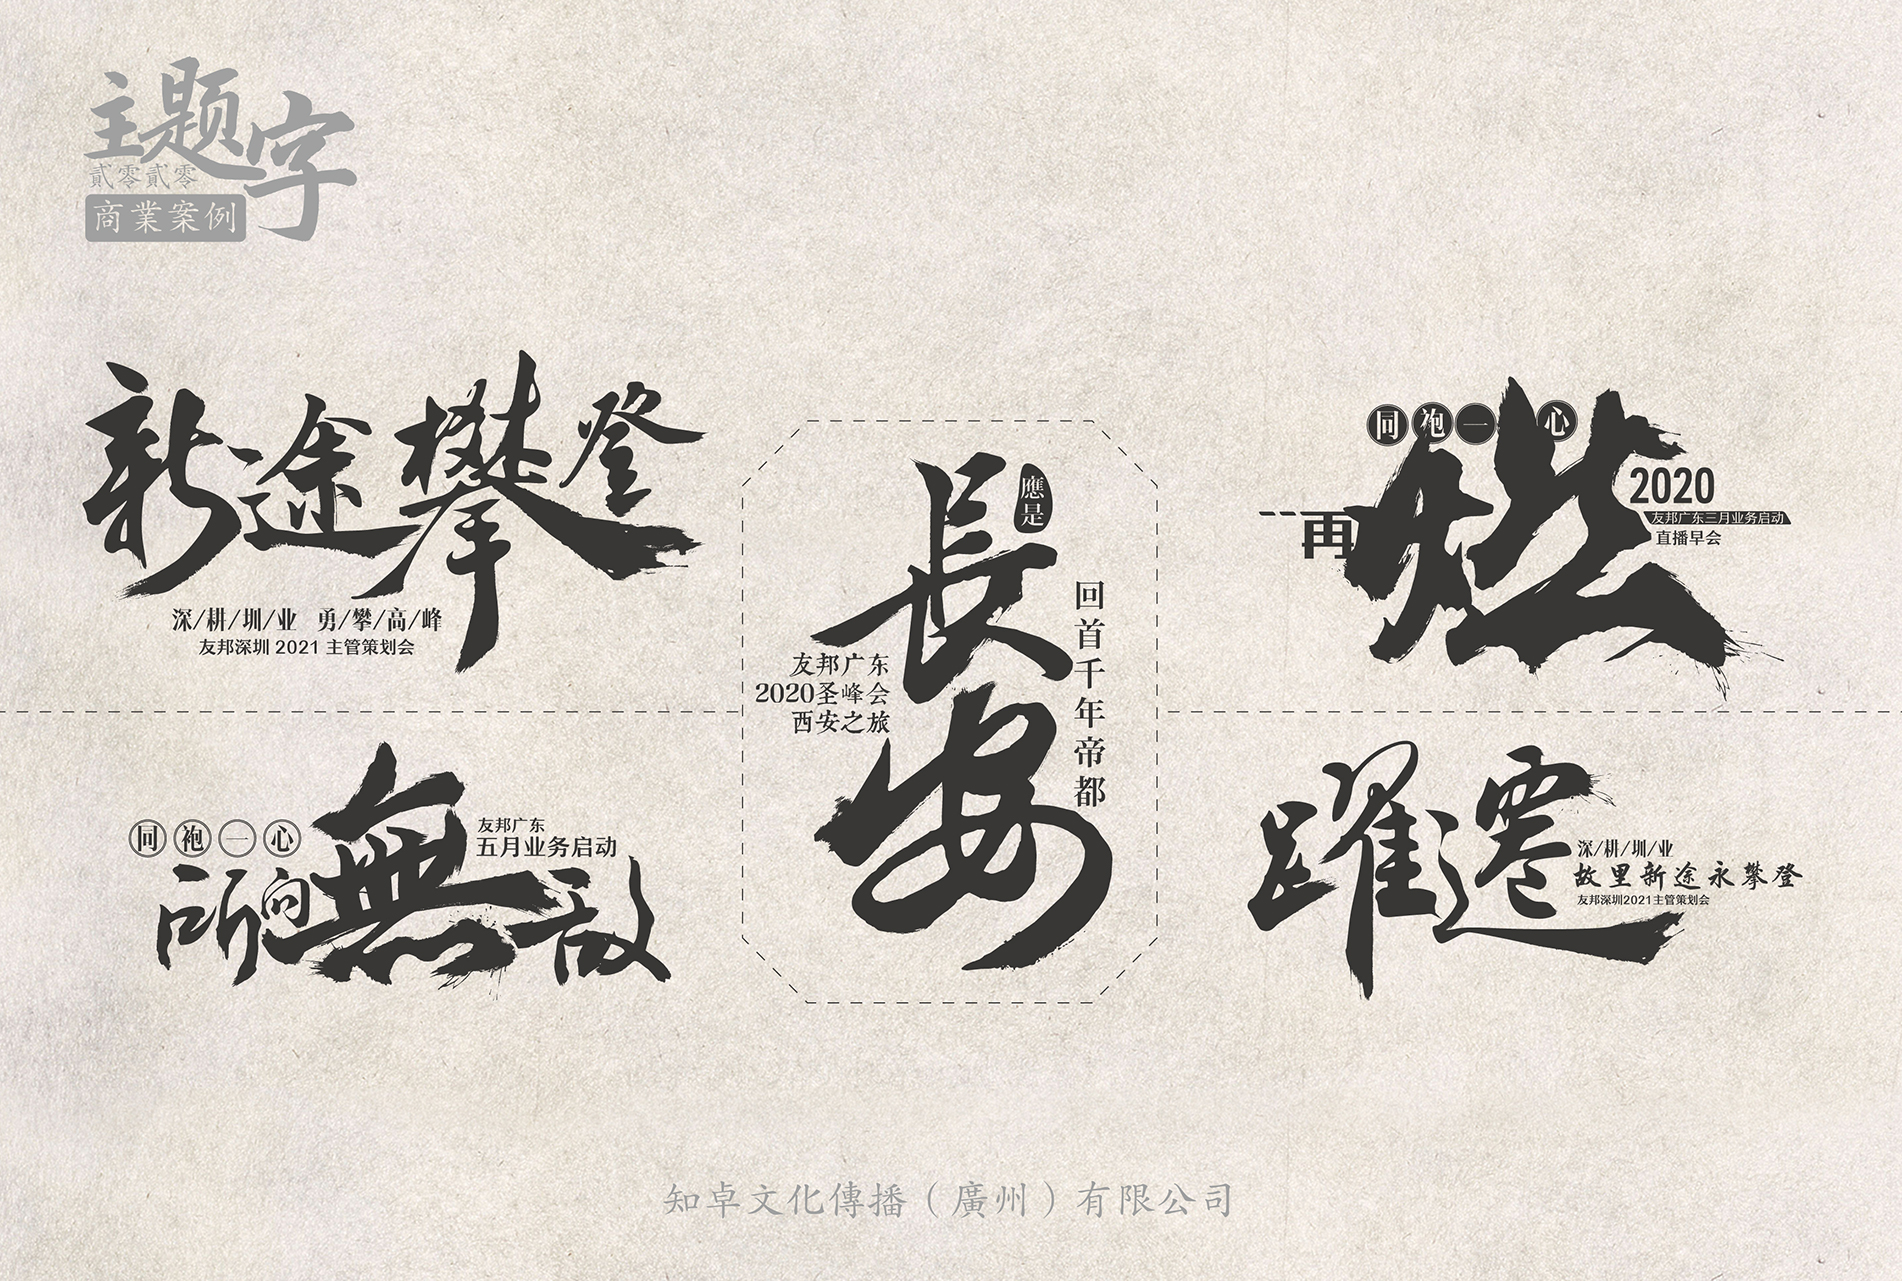 主题字
貳零貳零
商業案例
新途攀登
深/耕/圳/业 勇/攀/高/峰
友邦深圳 2021 主管策划会
應是
長安
回首千年帝都
友邦广东
2020圣峰会
西安之旅
同袍一心
再燃
2020
友邦广东三月业务启动
直播早会
同袍一心
所向無敌
友邦广东
五月业务启动
躍遷
深/耕/圳/业
故里新途永攀登
友邦深圳2021主管策划会
知卓文化傳播（廣州）有限公司